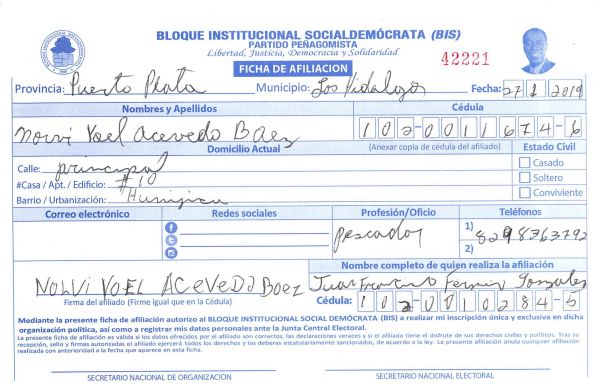 BLOQUE INSTITUCIONAL SOCIALDEMÓCRATA (BIS)
PARTIDO PEÑAGOMISTA
Libertad, Justicia, Democracia y Solidaridad
FICHA DE AFILIACION
42221
Provincia: Puerto Plata Municipio: Los Hidalgos Fecha: 27 1 2019
Nombres y Apellidos Cédula
Norvi Yoel Acevedo Baez 102-0011674-6
Domicilio Actual (Anexar copia de cédula del afiliado) Estado Civil
Calle: principal Casado
#Casa / Apt. / Edificio: #10 Soltero
Barrio / Urbanización: Conviviente
Correo electrónico Redes sociales Profesión/Oficio Teléfonos
pescador 1) 8298363792
2)
Nombre completo de quien realiza la afiliación
NOLVI YOEL ACEVEDO Baez Juan Francisco Gonzalez
Firma del afiliado (Firme igual que en la Cédula) Cédula: 102-0010284-5
Mediante la presente ficha de afiliación autorizo al BLOQUE INSTITUCIONAL SOCIAL DEMÓCRATA (BIS) a realizar mi inscripción única y exclusiva en dicha
organización política, así como a registrar mis datos personales ante la Junta Central Electoral.
La presente ficha de afiliación es válida si los datos ofrecidos por el afiliado son correctos, las declaraciones veraces y si el afiliado tiene el disfrute de sus derechos civiles y políticos. Tras su
recepción, sello y firmas autorizadas el afiliado ejercerá todos los derechos y los deberes estatutariamente sancionados, de acuerdo a la ley. La presente afiliación anula cualquier afiliación
realizada con anterioridad a la fecha que aparece en esta ficha.
SECRETARIO NACIONAL DE ORGANIZACIÓN SECRETARIO NACIONAL ELECTORAL